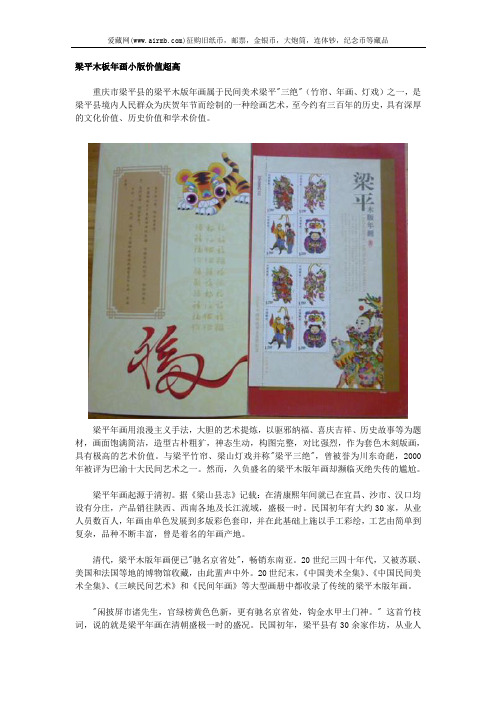 爱藏网(www.airmb.com)征购旧纸币，邮票，金银币，大炮筒，连体钞，纪念币等藏品
梁平木板年画小版价值超高
重庆市梁平县的梁平木版年画属于民间美术梁平"三绝"(竹帘、年画、灯戏)之一，是
梁平县境内人民群众为庆贺年节而绘制的一种绘画艺术，至今约有三百年的历史，具有深厚
的文化价值、历史价值和学术价值。
梁平
木版年画
福
梁平年画用浪漫主义手法，大胆的艺术提炼，以驱邪纳福、喜庆吉祥、历史故事等为题
材，画面饱满简洁，造型古朴粗犷，神态生动，构图完整，对比强烈，作为套色木刻版画，
具有极高的艺术价值。与梁平竹帘、梁山灯戏并称"梁平三绝"，曾被誉为川东奇葩，2000
年被评为巴渝十大民间艺术之一。然而，久负盛名的梁平木版年画却濒临灭绝失传的尴尬。
梁平年画起源于清初。据《梁山县志》记载：在清康熙年间就已在宜昌、沙市、汉口均
设有分庄，产品销往陕西、西南各地及长江流域，盛极一时。民国初年有大约30家，从业
人员数百人，年画由单色发展到多版彩色套印，并在此基础上施以手工彩绘，工艺由简单到
复杂，品种不断丰富，曾是着名的年画产地。
清代，梁平木版年画便已"驰名京省处"，畅销东南亚。20世纪三四十年代，又被苏联、
美国和法国等地的博物馆收藏，由此蜚声中外。20世纪末，《中国美术全集》、《中国民间美
术全集》、《三峡民间艺术》和《民间年画》等大型画册中都收录了传统的梁平木版年画。
"闲披屏市诸先生，官绿榜黄色色新，更有驰名京省处，钩金水甲土门神。" 这首竹枝
词，说的就是梁平年画在清朝盛极一时的盛况。民国初年，梁平县有30余家作坊，从业人